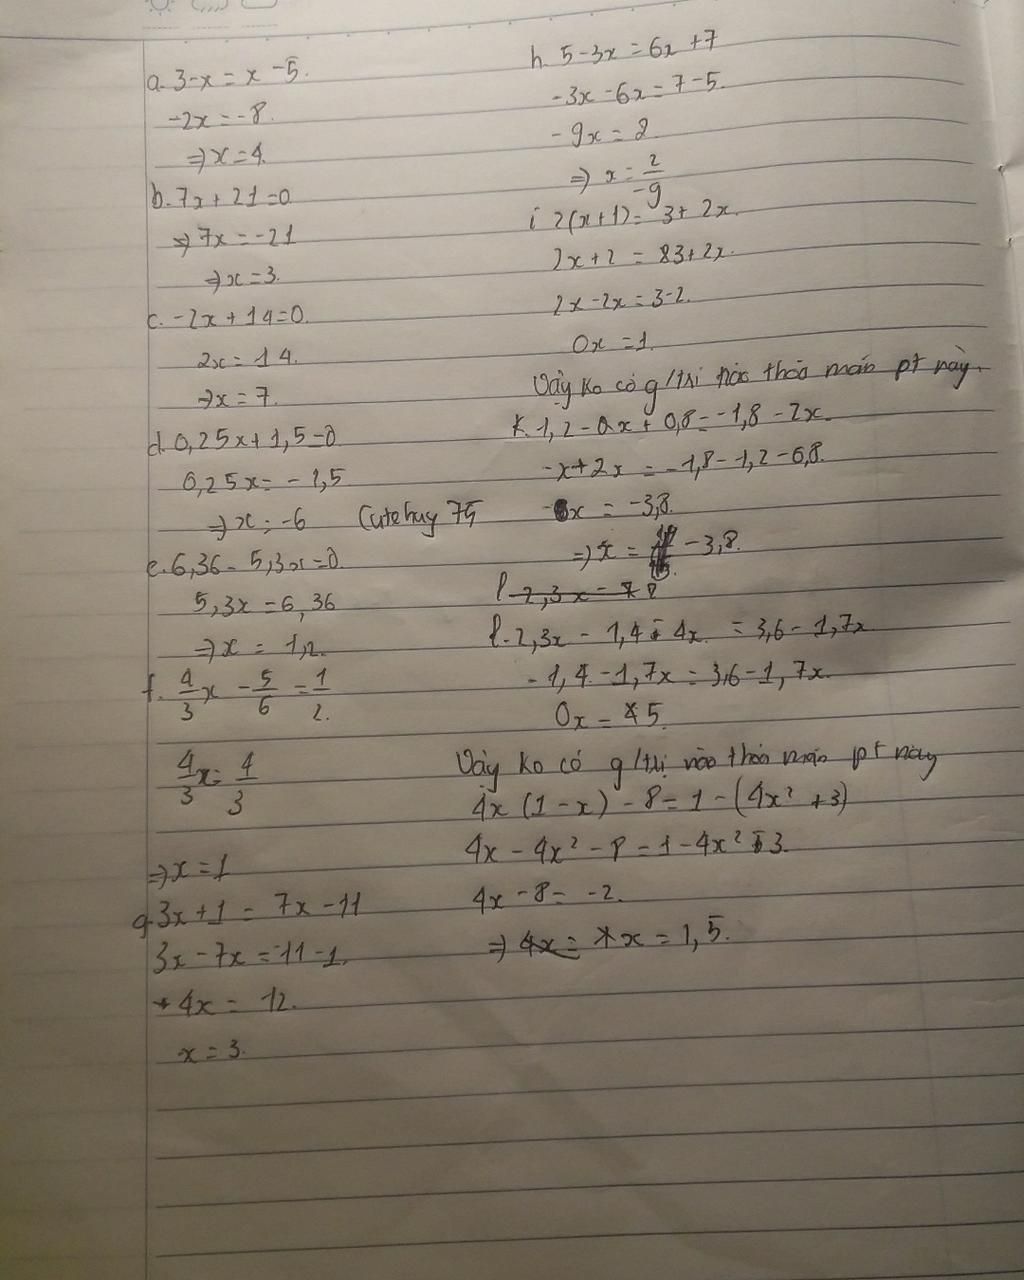 a. 3-x = x -5.
-2x = -8.
=> x = 4.
b. 7x + 21 = 0
=> 7x = -21
=> x = 3.
c. -2x + 14 = 0.
2x = 14.
=> x = 7.
d. 0,25x + 1,5 = 0
0,25x = -1,5
=> x = -6 Cutehuy 75
e. 6,36 - 5,3x = 0
5,3x = 6,36
=> x = 1,2
f. 4/3 x - 5/6 = 1/2
4/3 x = 4/3
=> x = 1
g. 3x + 1 = 7x - 11
3x - 7x = -11 - 1.
4x = 12.
x = 3.
h. 5 - 3x = 6x + 7
-3x - 6x = 7 - 5.
-9x = 2
=> x = 2/-9
i 2(x + 1) = 3 + 2x.
2x + 2 = 3 + 2x.
2x - 2x = 3 - 2.
0x = 1.
Vậy ko có g/trị nào thỏa mãn pt này.
k. 1,2 - x + 0,8 = -1,8 - 2x.
-x + 2x = -1,8 - 1,2 - 0,8.
x = -3,8.
=> x = -3,8.
l 2,3x =
l. 2,3x - 1,4 - 4x = 3,6 - 1,7x
-1,4 - 1,7x = 3,6 - 1,7x.
0x = 5.
Vậy ko có g/trị nào thỏa mãn pt này
4x (1 - x) - 8 = 1 - (4x² + 3)
4x - 4x² - 8 = 1 - 4x² - 3.
4x - 8 = -2.
=> x = 1,5.